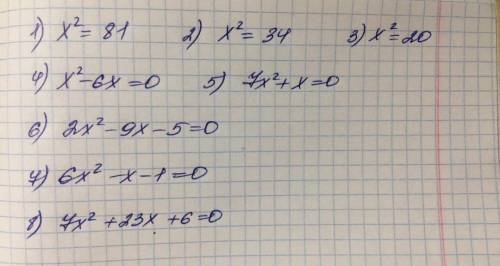 1) x² = 81 2) x² = 34 3) x² = 20
4) x² - 6x = 0 5) 7x² + x = 0
6) 2x² - 9x - 5 = 0
7) 6x² - x - 1 = 0
8) 7x² + 23x + 6 = 0